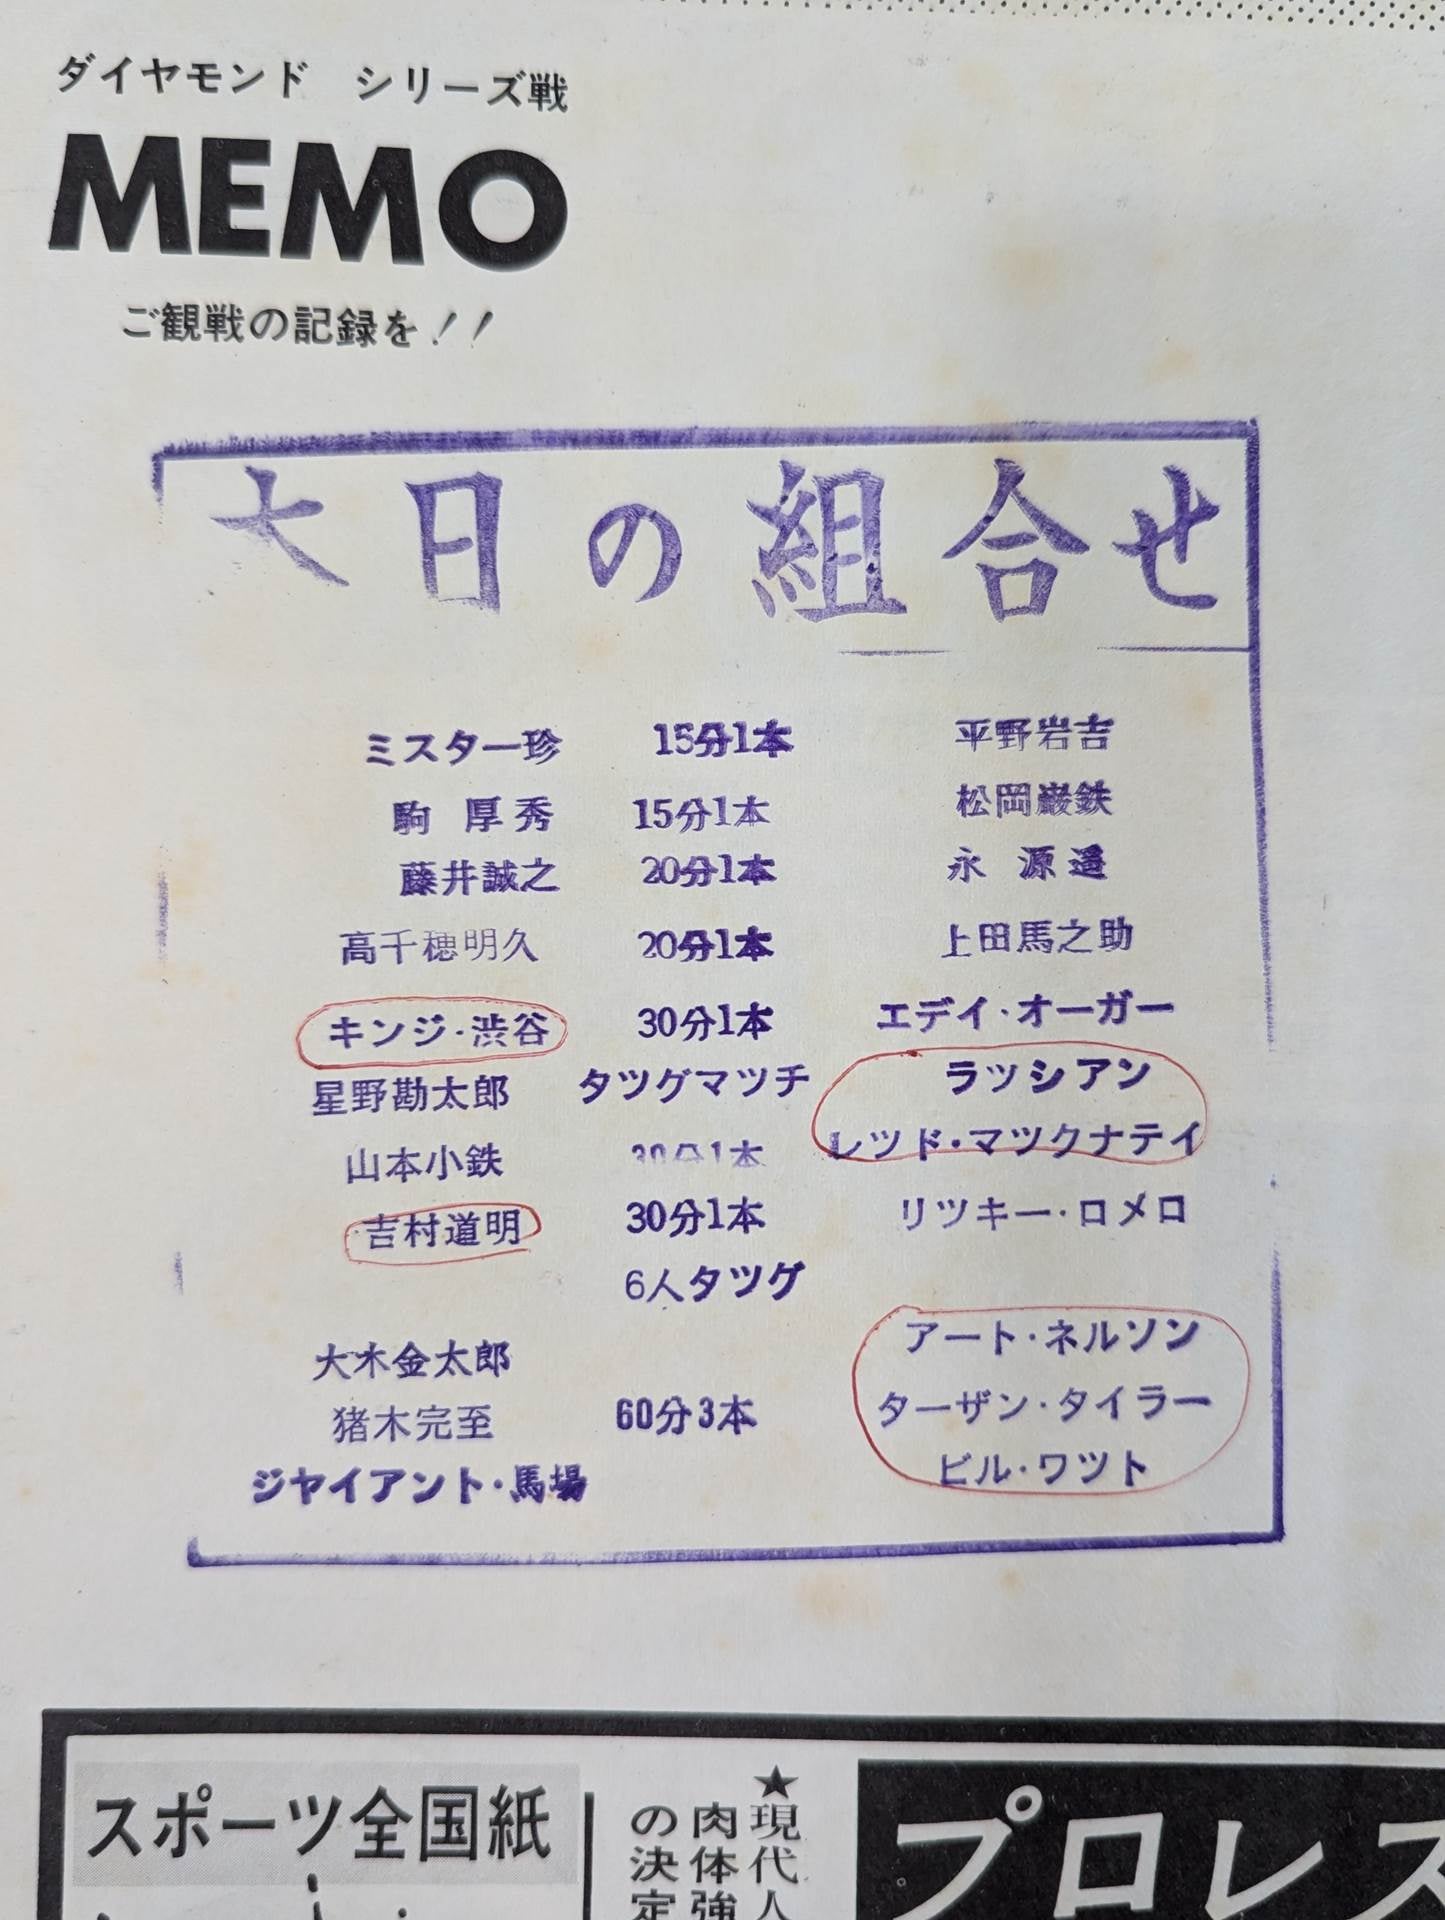 ダイヤモンド シリーズ戦
MEMO
ご観戦の記録を!!
日の組合せ
ミスター珍 15分1本 平野岩吉
駒 厚秀 15分1本 松岡巌鉄
藤井誠之 20分1本 永 源遥
高千穂明久 20分1本 上田馬之助
キンジ・渋谷 30分1本 エデイ・オーガー
星野勘太郎 タツグマツチ ラッシアン
山本小鉄 30分1本 レツド・マツクナテイ
吉村道明 30分1本 リツキー・ロメロ
6人タツグ
大木金太郎 アート・ネルソン
猪木完至 60分3本 ターザン・タイラー
ジヤイアント・馬場 ビル・ワツト
スポーツ全国紙
★現代人
肉体強
の決定
プロレス